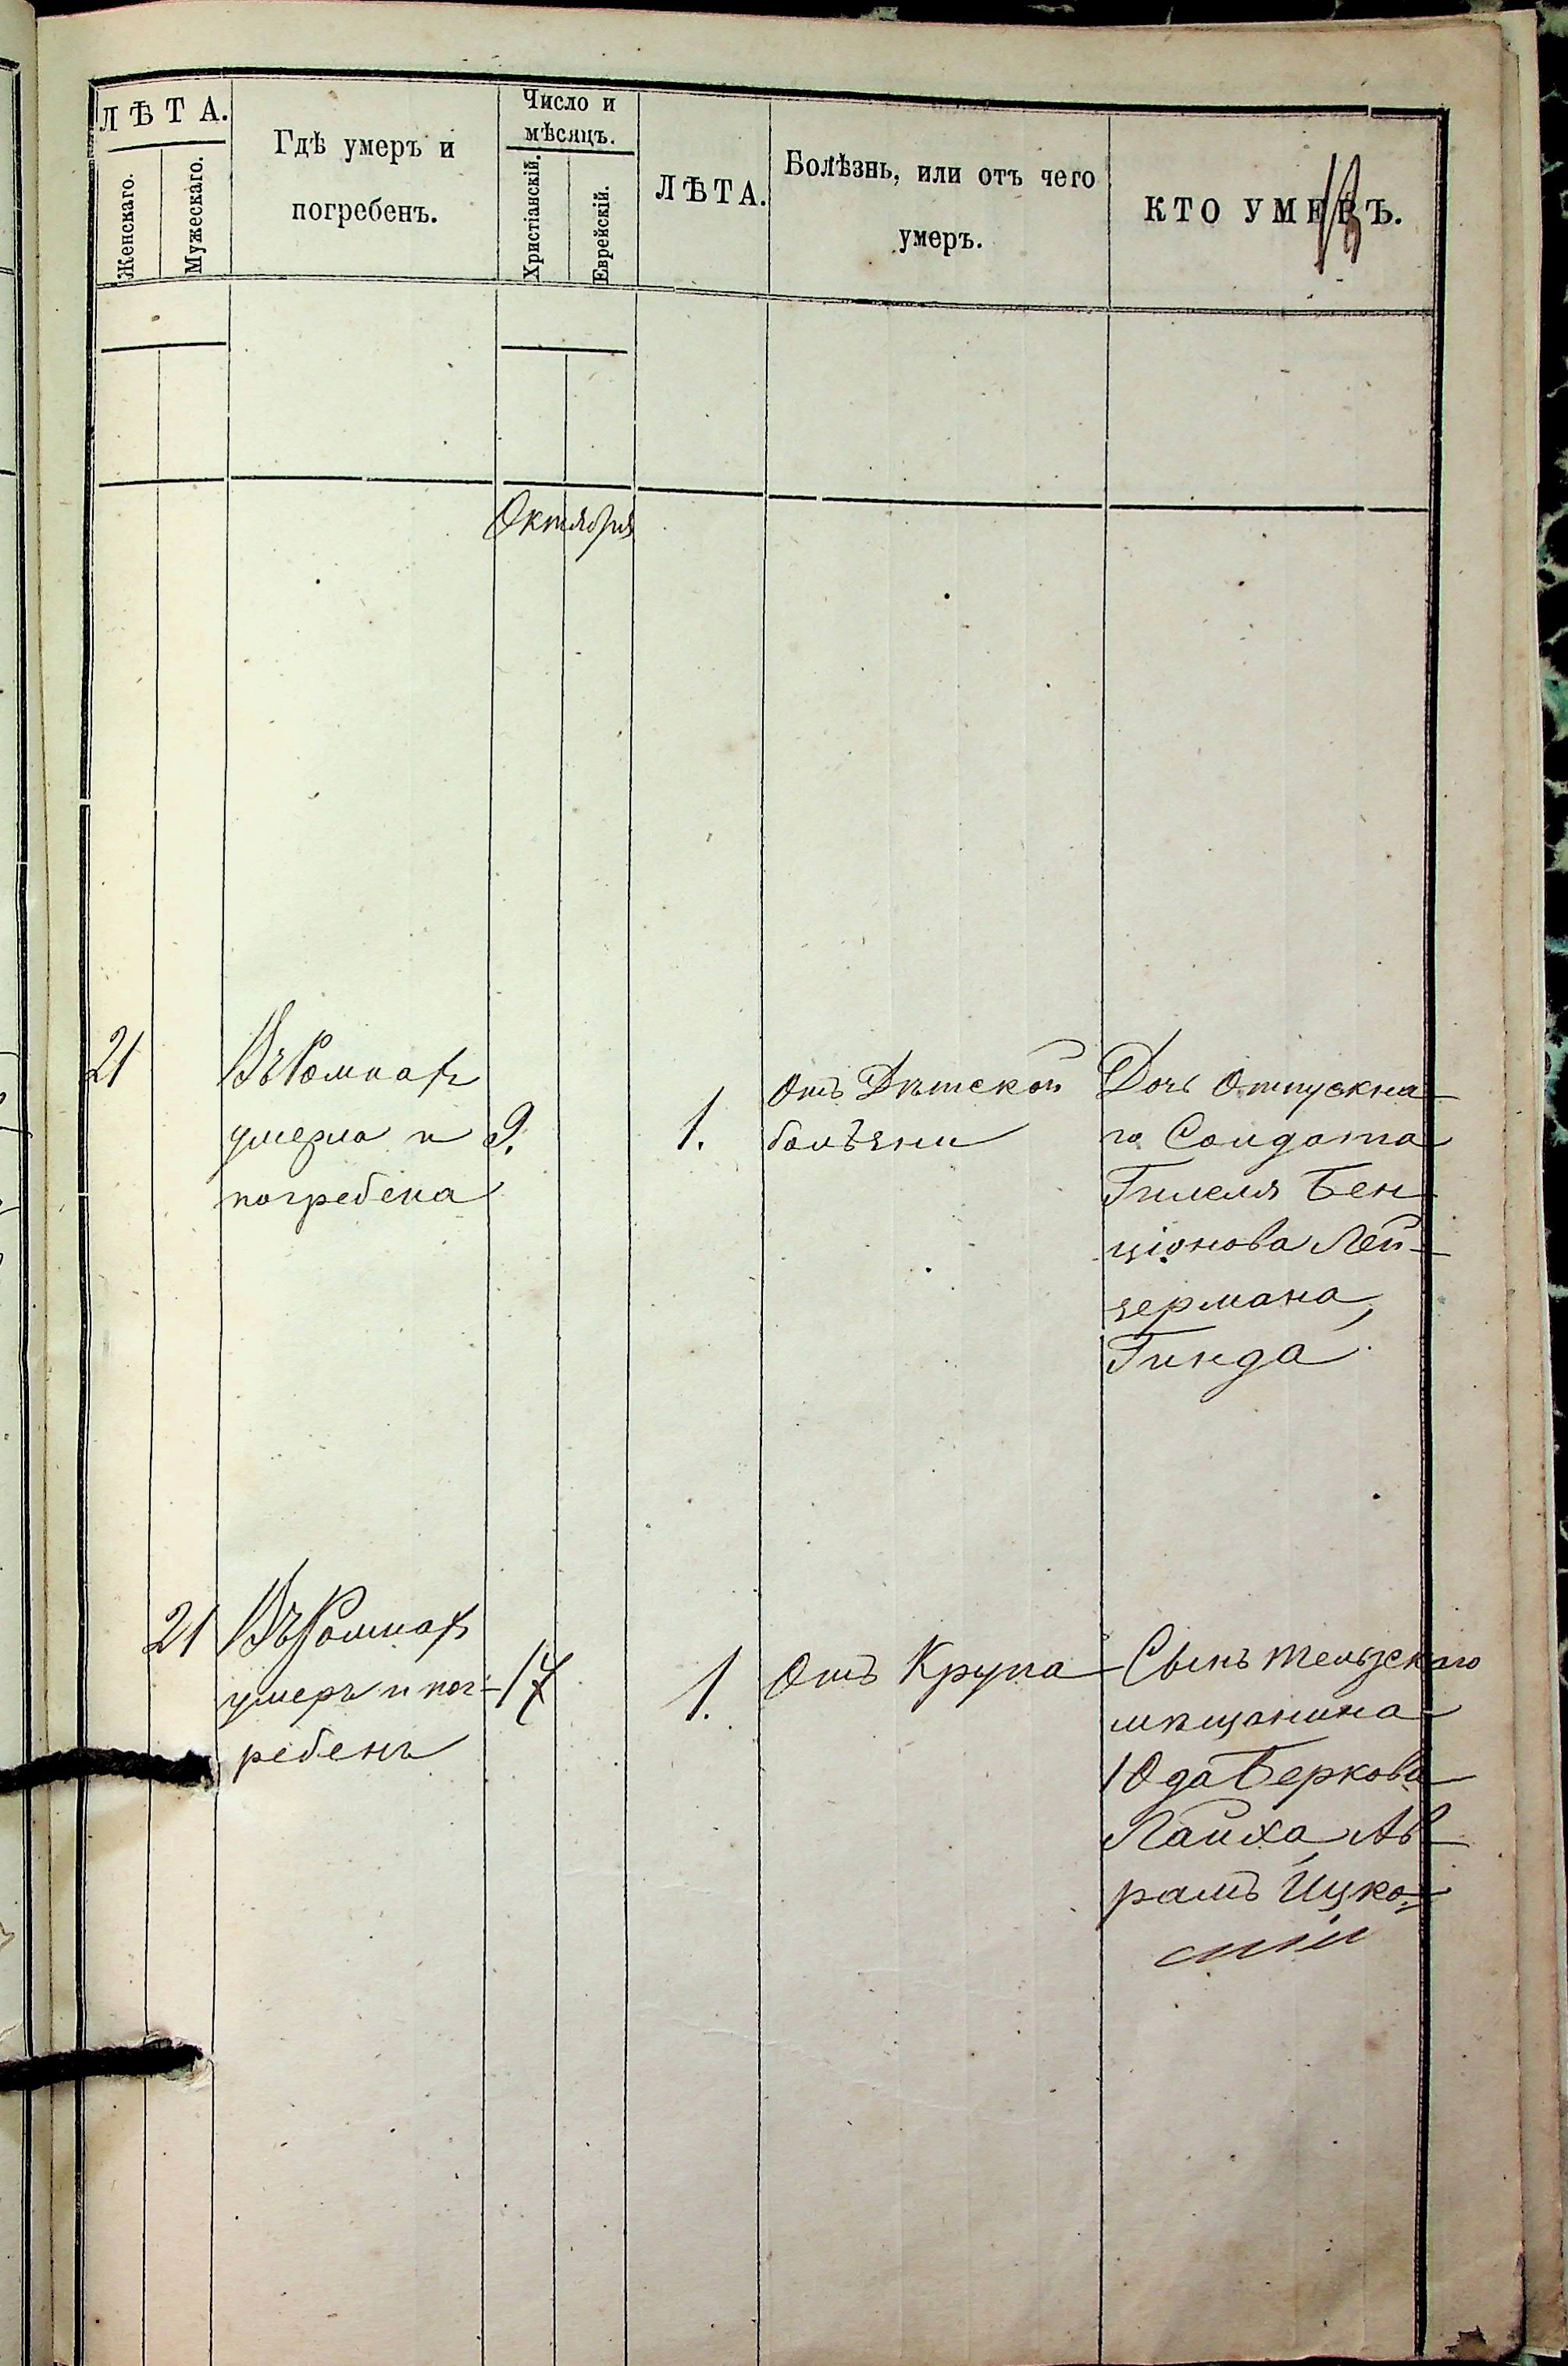 ЛѢТА.
Женскаго.
Мужескаго.
Гдѣ умеръ и
погребенъ.
Число и
мѣсяцъ.
Христіанскій.
Еврейскій.
ЛѢТА.
Болѣзнь, или отъ чего
умеръ.
КТО УМЕРЪ.
Октября
21
Въ Ромнахъ
умерла и
погребена
9.
1.
Отъ Дѣтской
болѣзни
Дочь Отпускна-
го Солдата
Гилеля Бен-
ціонова Лей-
зермана,
Гинда
21
Въ Ромнахъ
умеръ и пог-
ребенъ
17
1.
Отъ Крупа
Сынъ тельзскаго
мѣщанина
Юда Беркова
Лайха, Аб-
рамъ Ицко-